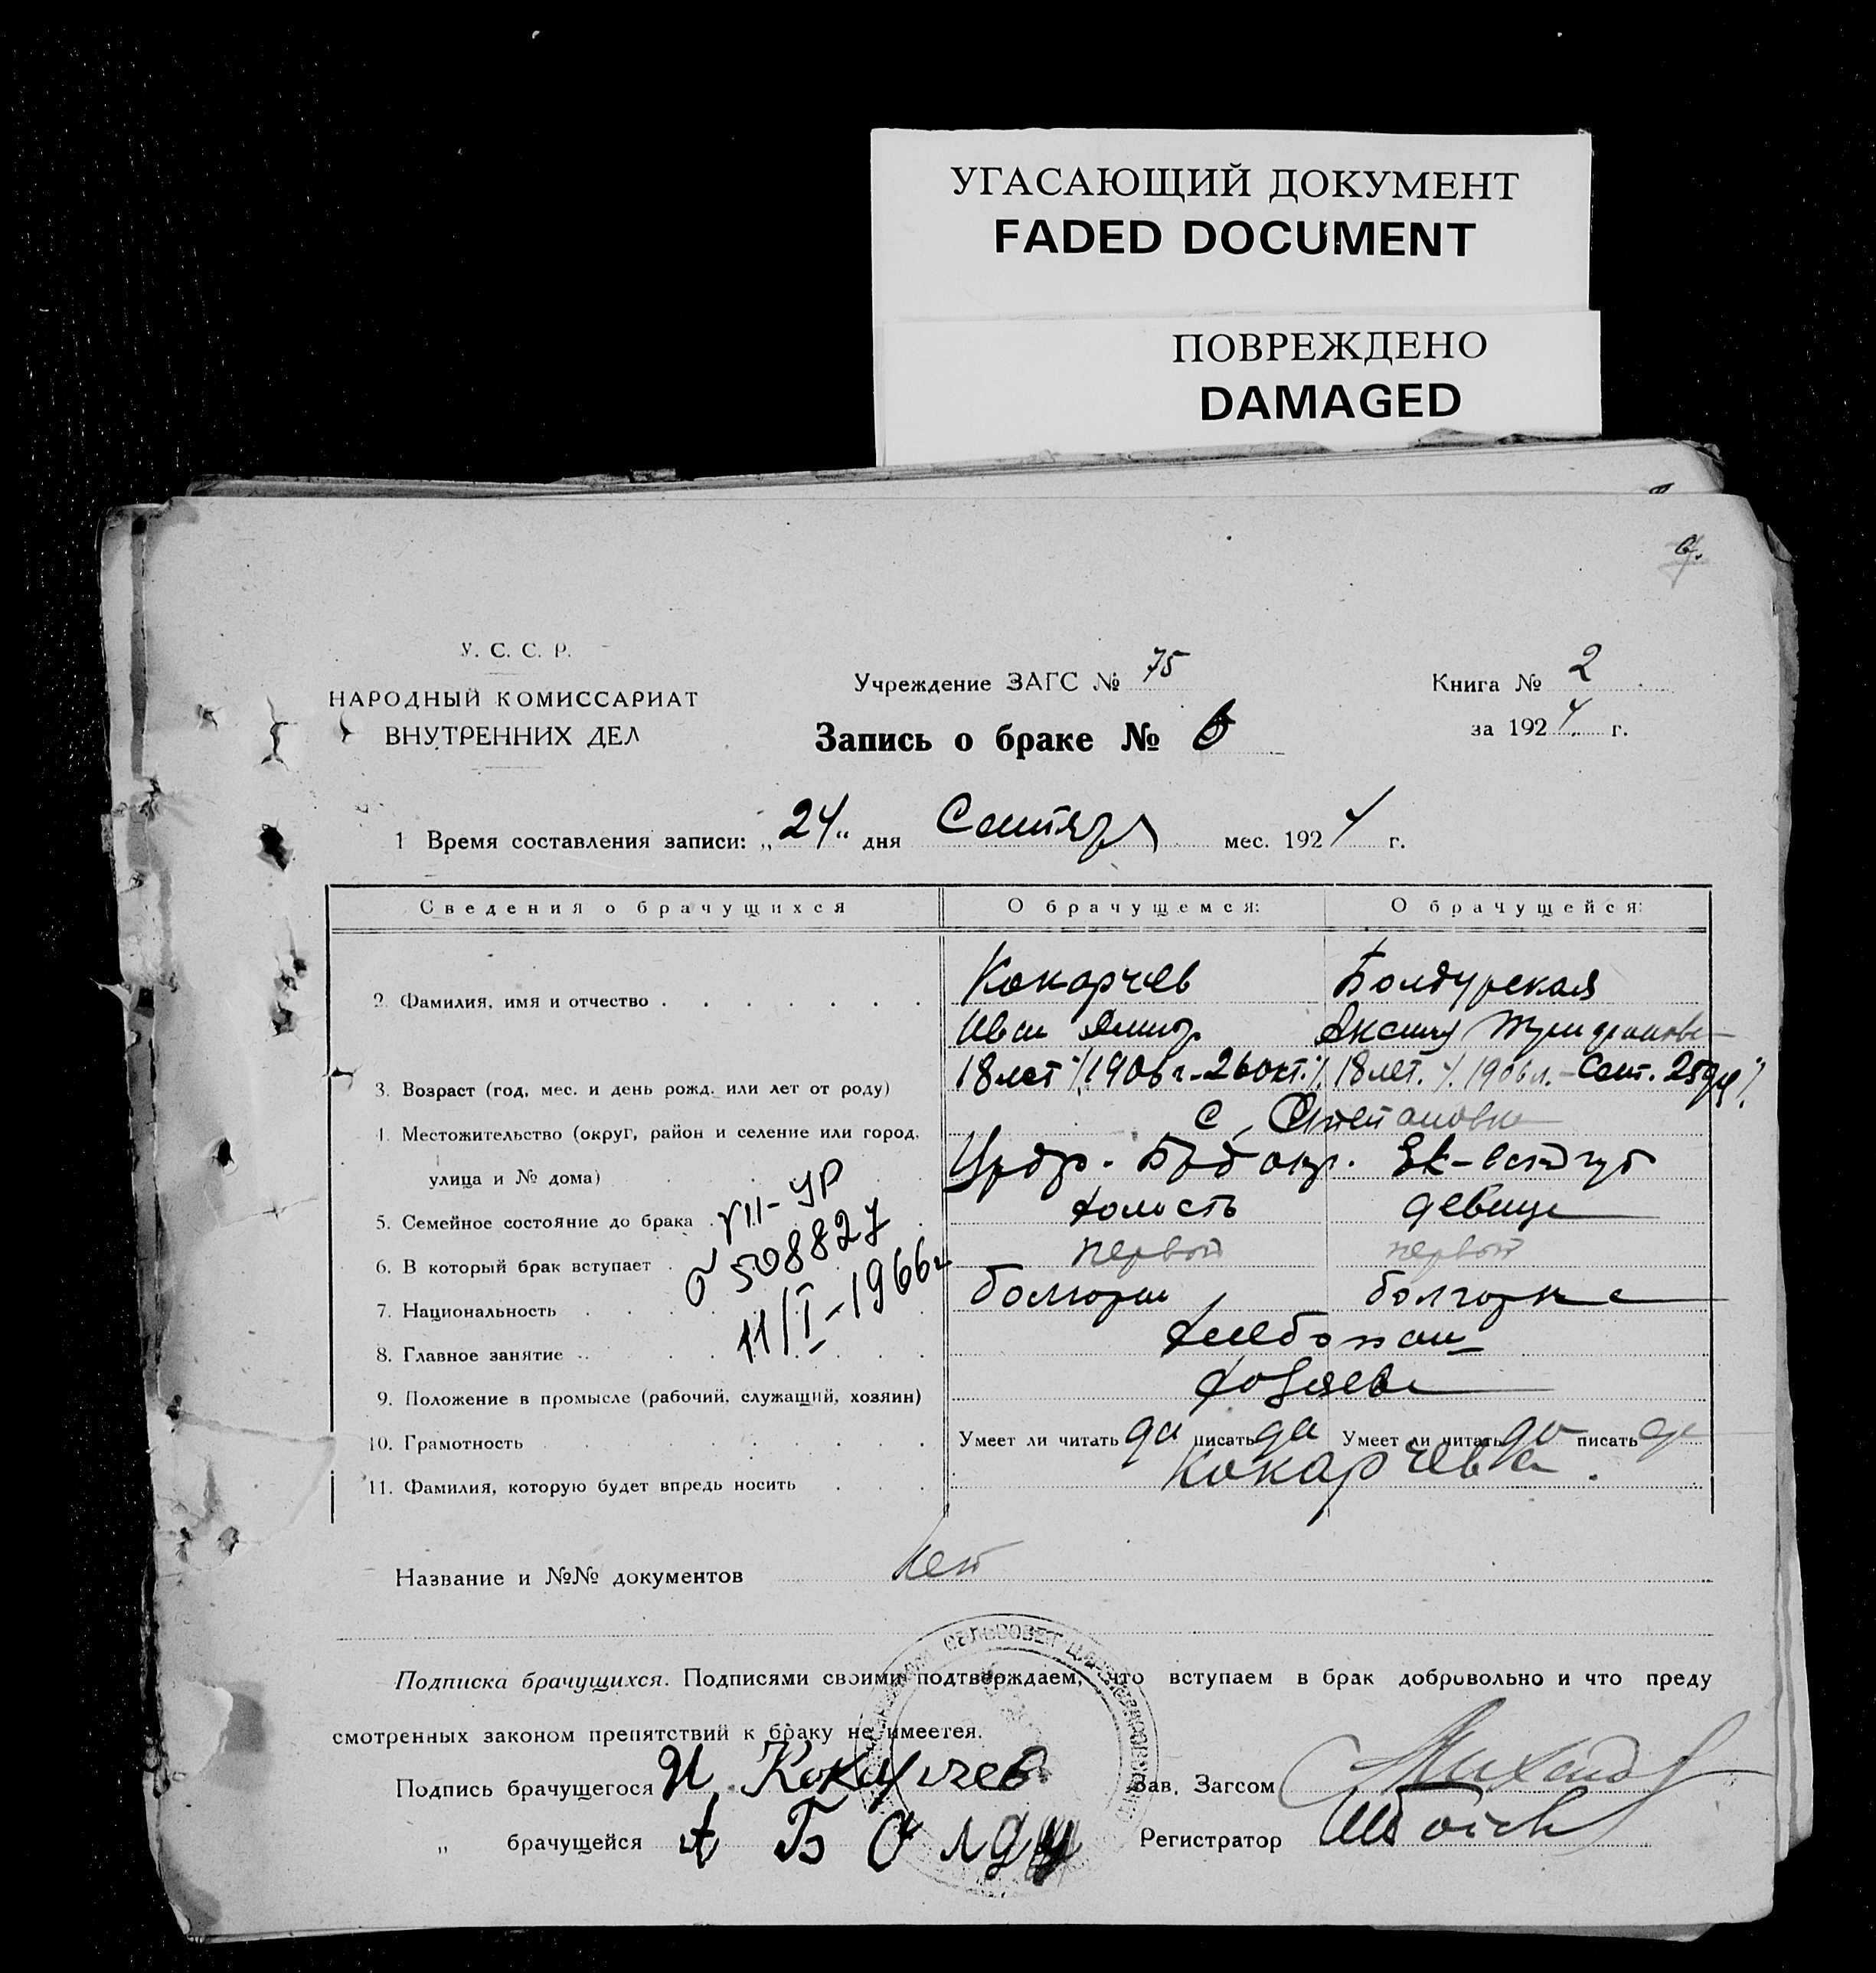 УГАСАЮЩИЙ ДОКУМЕНТ
FADED DOCUMENT
ПОВРЕЖДЕНО
DAMAGED
6.
У. С. С. Р.
НАРОДНЫЙ КОМИССАРИАТ
ВНУТРЕННИХ ДЕЛ
Учреждение ЗАГС № 75
Книга № 2
Запись о браке № 6
за 1924 г.
1 Время составления записи: „24“ дня Сентяря мес. 1924 г.
Сведения о брачущихся О брачущемся: О брачущейся:
2. Фамилия, имя и отчество Кокарчев Болдурская
Иван
3. Возраст (год, мес. и день рожд. или лет от роду) 18 лет 1906 г. 26 окт. 18 лет. 1906 Сент. 25 дня
4. Местожительство (округ, район и селение или город, с. Степановка
улица и № дома)
5. Семейное состояние до брака холость девица
6. В который брак вступает первой первой
7. Национальность болгарин болгарка
VII-УР
508827
11/I-1966г
8. Главное занятие хлебопаш
9. Положение в промысле (рабочий, служащий, хозяин) хозяева
10. Грамотность Умеет ли читать да писать да Умеет ли читать да писать да
11. Фамилия, которую будет впредь носить Кокарчева.
Название и №№ документов нет
Подписка брачущихся. Подписями своими подтверждаем, что вступаем в брак добровольно и что преду
смотренных законом препятствий к браку не имеется.
Подпись брачущегося И Кокарчев Зав. Загсом
„ брачущейся А Болду Регистратор